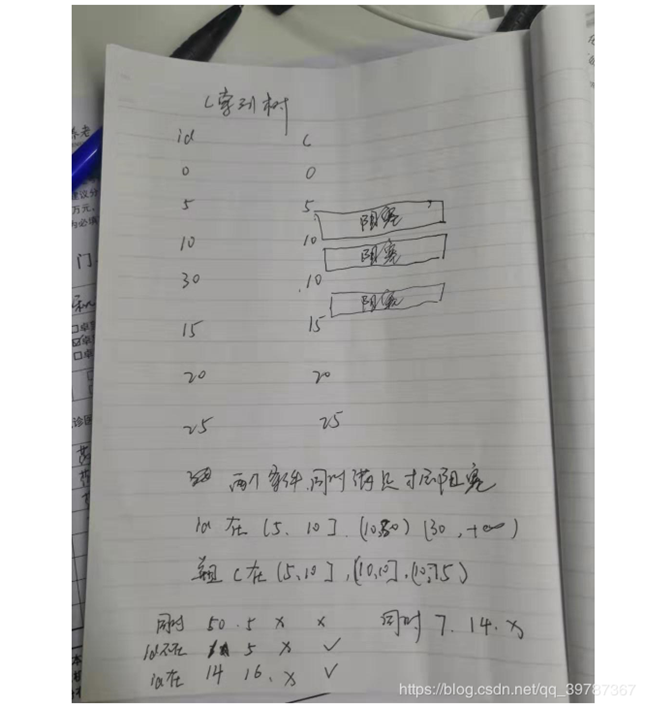 C索引树
id C
0 0
5 5
阻塞
10 10
阻塞
30 10
阻塞
15 15
20 20
25 25
两个条件同时满足才会阻塞
id 在 (5, 10], (10,30) (30, +∞)
且 C在 (5,10], (10,10], (10,15)
同时 50 . 5 x x 同时 7. 14. x
id不在 5 x ✓
id在 14 16. x ✓
https://blog.csdn.net/qq_39787367